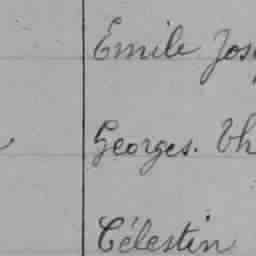 Emile Jos
Georges. Th
Célestin